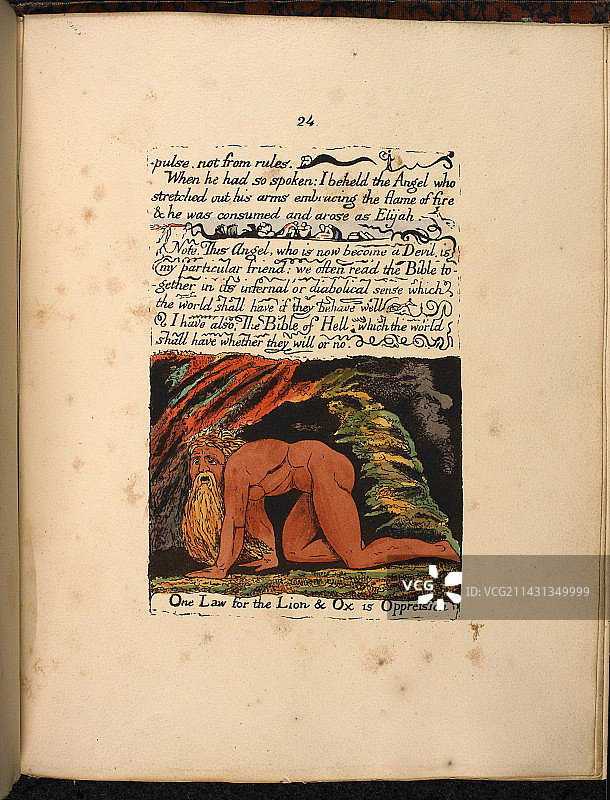 24
pulse, not from rules.
When he had so spoken: I beheld the Angel who
stretched out his arms embracing the flame of fire
& he was consumed and arose as Elijah.
Note. This Angel, who is now become a Devil, is
my particular friend: we often read the Bible to-
-gether in its infernal or diabolical sense which
the world shall have if they behave well
I have also; The Bible of Hell: which the world
shall have whether they will or no.
One Law for the Lion & Ox is Oppression
VCG
ID: VCG211431349999